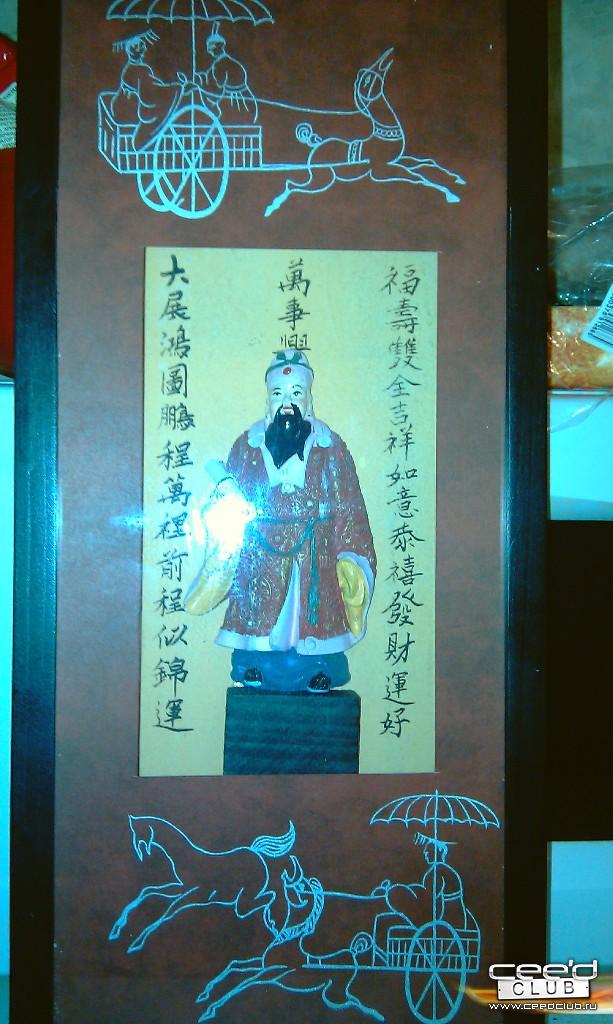 福壽雙全吉祥如意恭禧發財運好
萬事興
大展鴻圖鵬程萬裡前程似錦運
cee'd
CLUB
www.ceedclub.ru